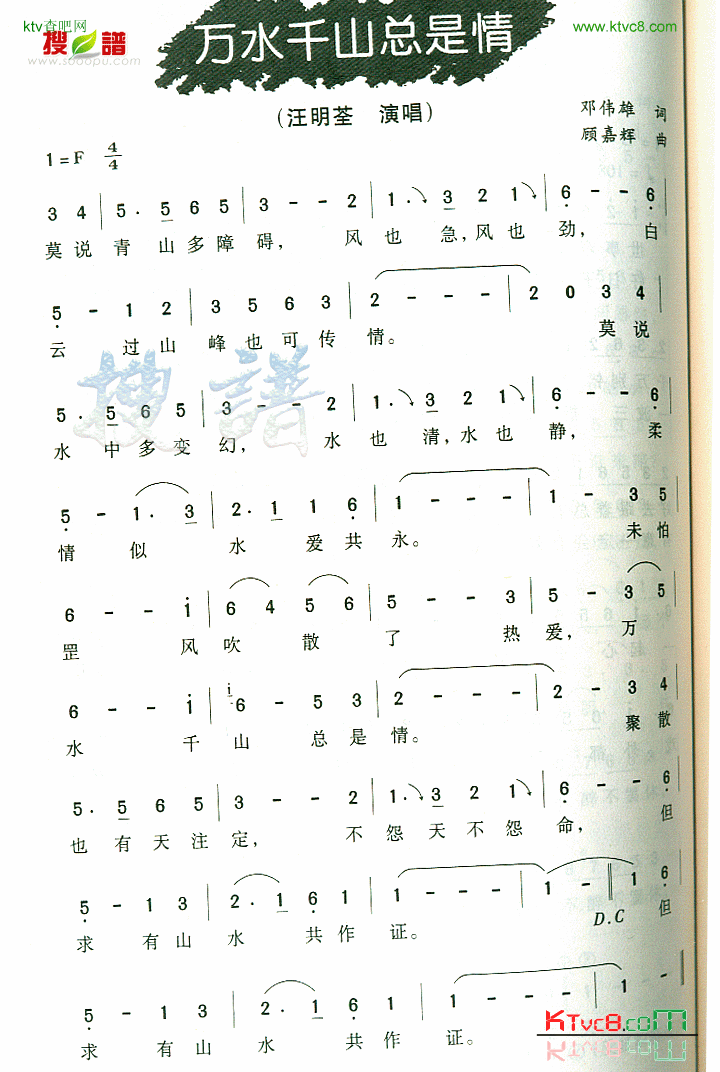 ktv查吧网
www.ktvc8.com
搜谱
www.sooopu.com
万水千山总是情
(汪明荃 演唱)
邓伟雄 词
顾嘉辉 曲
1=F 4/4
3 4 | 5· 5 6 5 | 3 - - 2 | 1· 3 2 1 | 6 - - 6 |
莫说青山多障碍，风也急，风也劲，白
5 - 1 2 | 3 5 6 3 | 2 - - - | 2 0 3 4 |
云过山峰也可传情。莫说
5· 5 6 5 | 3 - - 2 | 1· 3 2 1 | 6 - - 6 |
水中多变幻，水也清，水也静，柔
5 - 1· 3 | 2· 1 1 6 | 1 - - - | 1 - 3 5 |
情似水爱共永。未怕
6 - - i | 6 4 5 6 | 5 - - 3 | 5 - 3 5 |
罡风吹散了热爱，万
6 - - i | i 6 - 5 3 | 2 - - - | 2 - 3 4 |
水千山总是情。聚散
5· 5 6 5 | 3 - - 2 | 1· 3 2 1 | 6 - - 6 |
也有天注定，不怨天不怨命，但
5 - 1 3 | 2· 1 6 1 | 1 - - - | 1 - || 1 6 |
D.C
求有山水共作证。但
5 - 1 3 | 2· 1 6 | 1 - - - | 1
求有山水共作证。
KTvc8.com